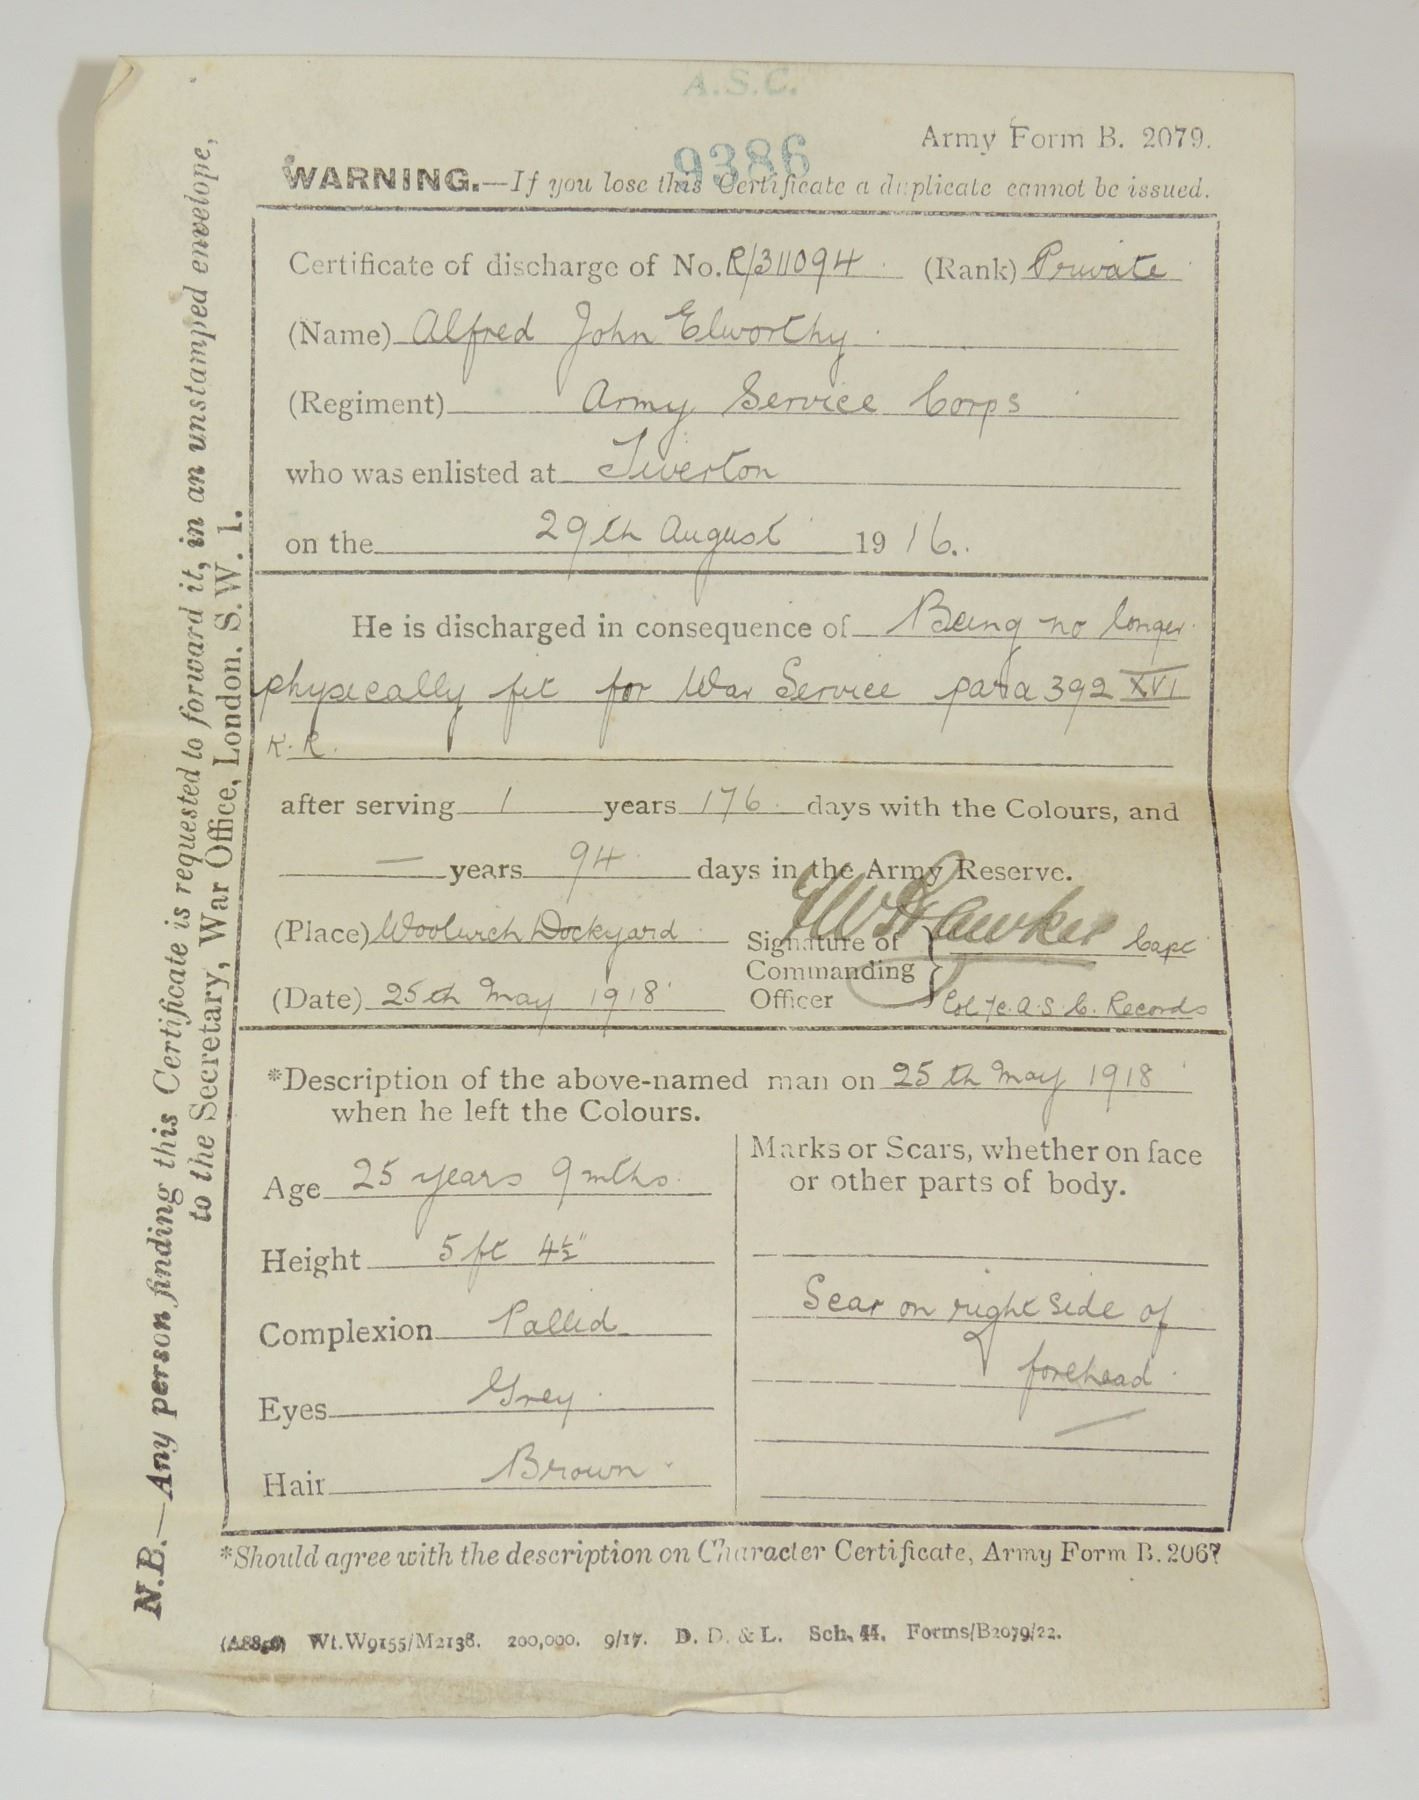 A.S.C.
Army Form B. 2079.
9386
WARNING.—If you lose this Certificate a duplicate cannot be issued.
Certificate of discharge of No. R/311094 (Rank) Private
(Name) Alfred John Elworthy
(Regiment) Army Service Corps
who was enlisted at Tiverton
on the 29th August 1916.
He is discharged in consequence of Being no longer
physically fit for War Service para 392 XVI
K.R.
after serving 1 years 176 days with the Colours, and
— years 94 days in the Army Reserve.
(Place) Woolwich Dockyard
Signature of Commanding Officer } Hawker Capt
(Date) 25th May 1918
Col i/c. A.S.C. Records
*Description of the above-named man on 25th May 1918
when he left the Colours.
Age 25 years 9 mths.
Height 5 ft 4½"
Complexion Pallid
Eyes Grey
Hair Brown
Marks or Scars, whether on face
or other parts of body.
Scar on right side of
forehead
*Should agree with the description on Character Certificate, Army Form B. 2067
Wt.W9155/M2138. 200,000. 9/17. D. D. & L. Sch. 44. Forms/B2079/22.
N.B.—Any person finding this Certificate is requested to forward it, in an unstamped envelope,
to the Secretary, War Office, London, S.W. 1.